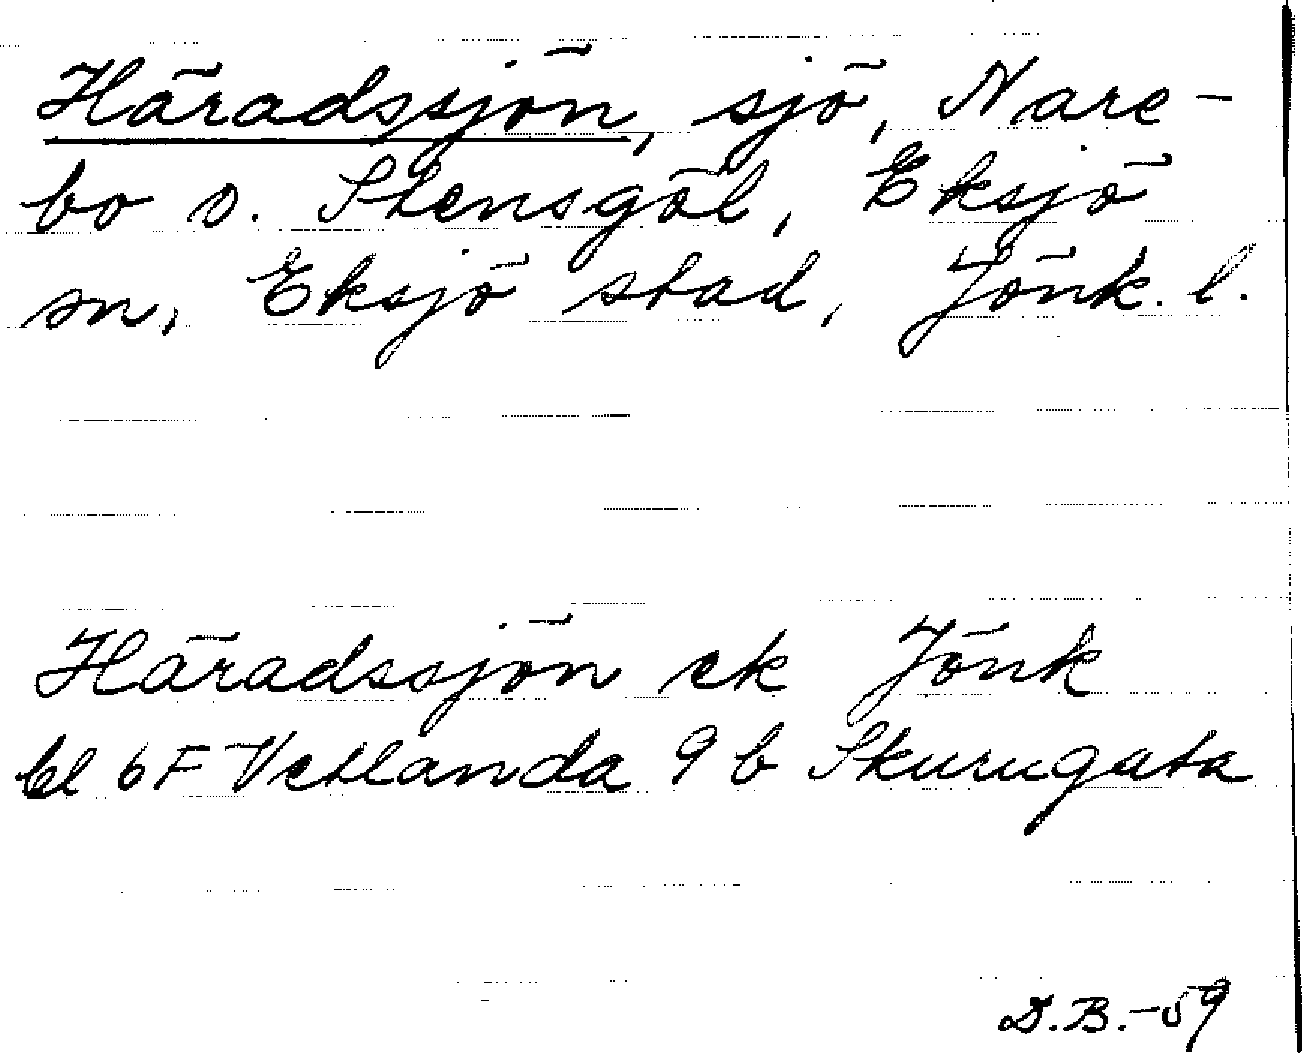 Häradssjön, sjö, Nare-
bo o. Stensgöl, Eksjö
sn, Eksjö stad, Jönk. l.
Häradssjön ek Jönk
bl 6F Vetlanda 9 b Skurugata
D.B.-59